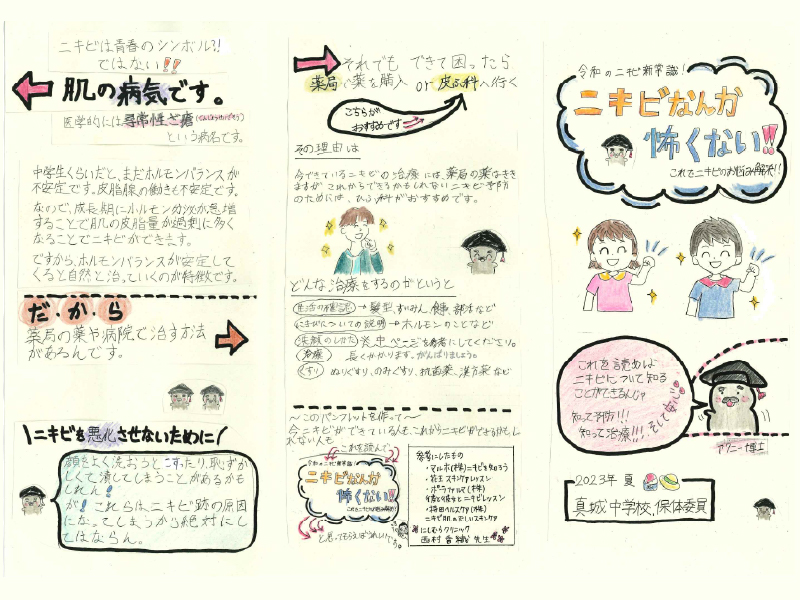 ニキビは青春のシンボル?!
ではない!!
肌の病気です。
医学的には尋常性ざ瘡(じんじょうせいざそう)
という病名です。
中学生くらいだと、まだホルモンバランスが
不安定です。皮脂腺の働きも不安定です。
なので、成長期にホルモン分泌が急増
することで肌の皮脂量が過剰に多く
なることでニキビができます。
ですから、ホルモンバランスが安定して
くると自然と治っていくのが特徴です。
だ・か・ら
薬局の薬や病院で治す方法
があるんです。
\ニキビを悪化させないために/
顔をよく洗おうとこすったり、恥ずか
しくて潰してしまうことがあるかも
しれん!
が!これらは、ニキビ跡の原因
になってしまうから絶対にし
てはならん。
それでもできて困ったら
薬局で薬を購入 or 皮ふ科へ行く
こちらが
おすすめです
その理由は
今できているニキビの治療には、薬局の薬はきき
ますが これからできるかもしれないニキビ予防
のためには、ひふ科がおすすめです。
どんな治療をするのかというと
生活の確認→髪型、すいみん、食事、部活など
にきびについての説明→ホルモンのことなど
洗顔のしかた 次ページを参考にしてください。
治療 長くかかります。がんばりましょう。
くすり ぬりぐすり、のみぐすり、抗菌薬、漢方薬など
〜このパンフレットを作って〜
今ニキビができている人も、これからニキビができるかもし
れない人も
これを読んで
令和のニキビ新常識!
ニキビなんか
怖くない!!
これでニキビのお悩み解決!!
と思ってもらえればうれしいです。
参考にしたもの
・マルホ(株)ニキビを知ろう
・花王 スキンケアレッスン
・ポーラファルマ(株)
ニキビレッスン
・持田ヘルスケア(株)
ニキビ肌の正しいスキンケア
にしむらクリニック
西村香織先生
令和のニキビ新常識!
ニキビなんか
怖くない!!
これでニキビのお悩み解決!!
これを読めば
ニキビについて知る
ことができるんじゃ
知って予防!!!
知って治療!!!
そして安心
アクニー博士
2023年 夏
真城中学校、保体委員